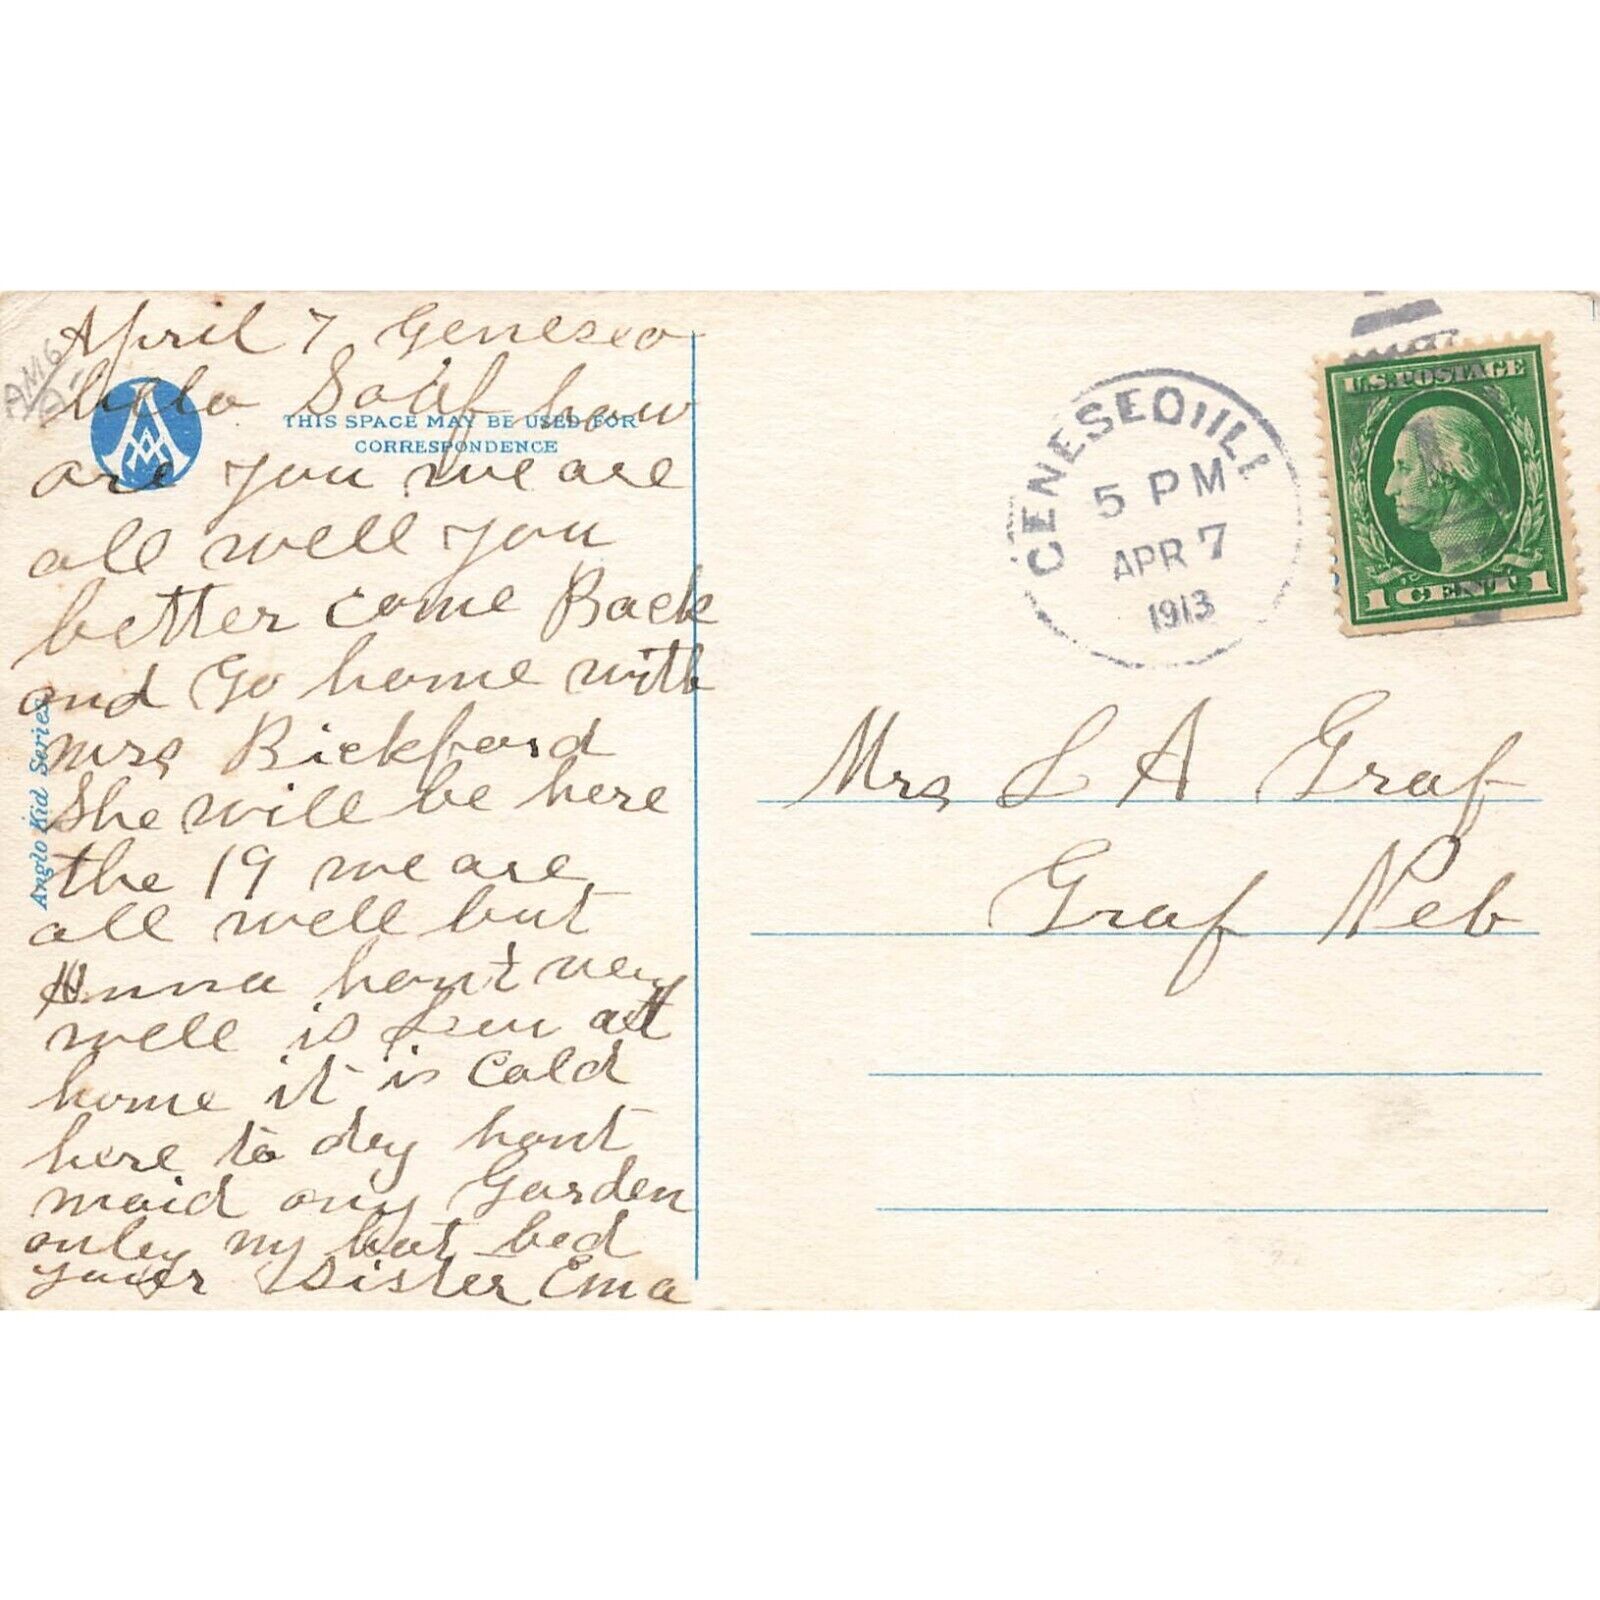 April 7 Geneseo
hello how
are you we are
all well you
better come Back
and Go home with
Mrs Bickford
She will be here
the 19 we are
all well but
Anna hant very
well is at
home it is Cold
here to dey hant
maid ony Garden
onley my hot bed
Sister Ema
THIS SPACE MAY BE USED FOR
CORRESPONDENCE
Anglo Kid Series
GENESEO, ILL.
5 PM
APR 7
1913
U.S. POSTAGE
1 CENT 1
Mrs L A Graf
Graf Neb